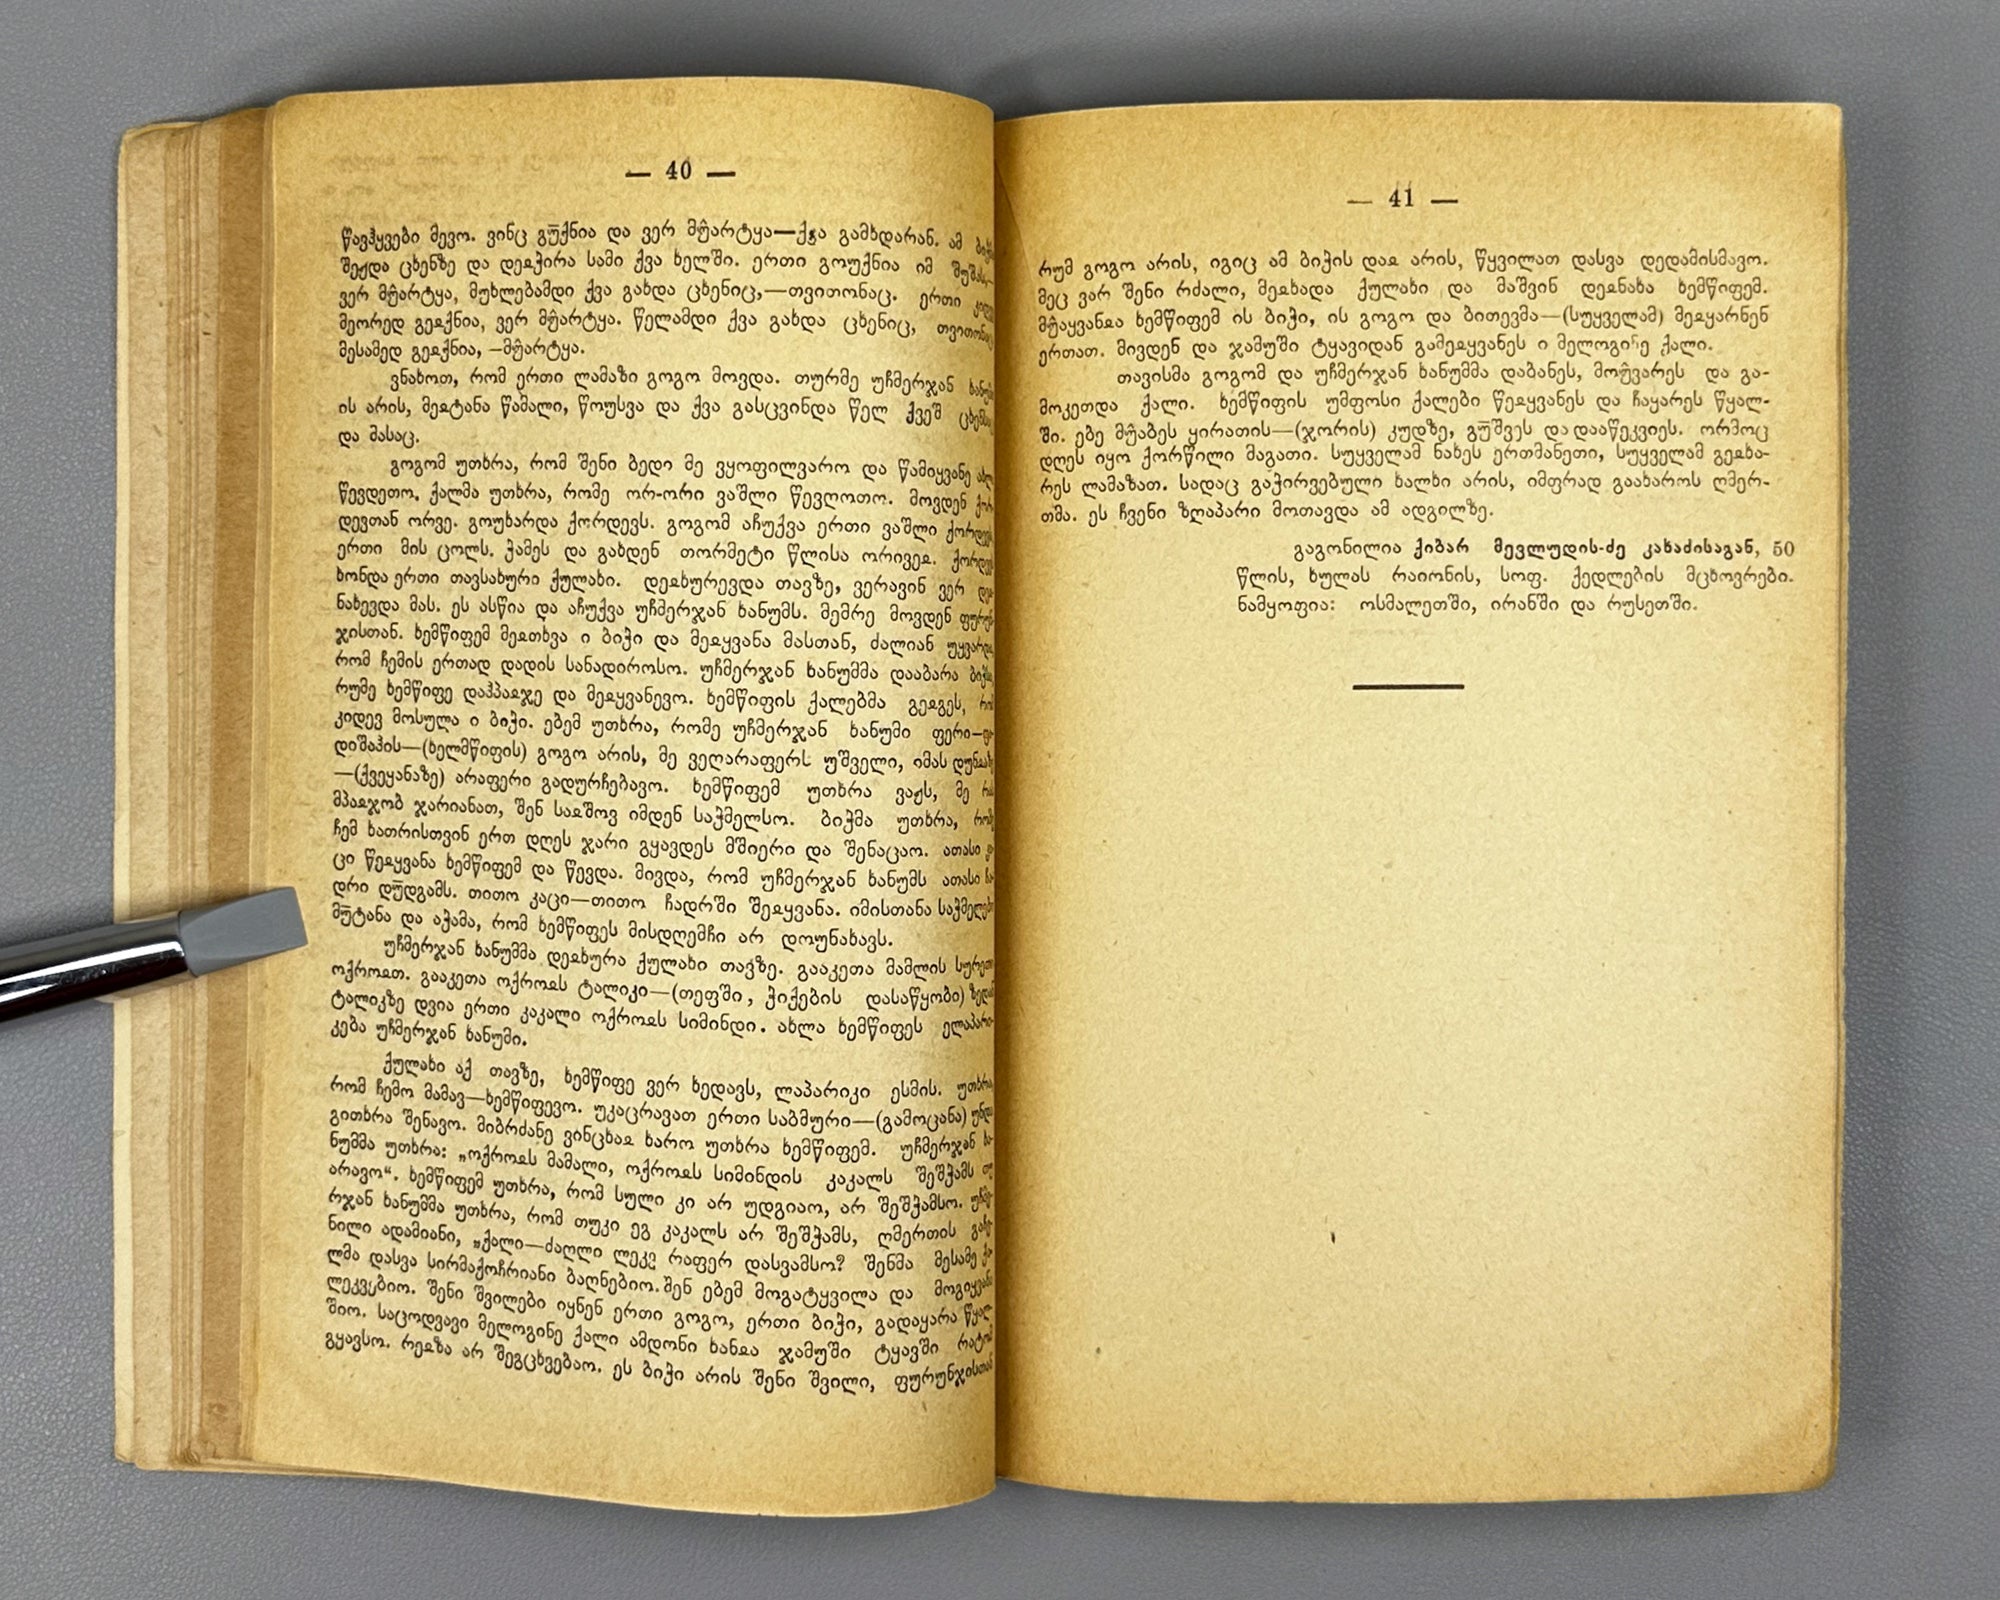 — 40 —
წავჰყვები მევო. ვინც გუ̄ქნია და ვერ მუ̂არტყა—ქვა გამხდარან. ამ
შეჟდა ცხენზე და დეჲჭირა სამი ქვა ხელში. ერთი გოუქნია იმ
ვერ მუ̂არტყა, მუხლებამდი ქვა გახდა ცხენიც,—თვითონაც. ერთი
მეორედ გეჲქნია, ვერ მუ̂არტყა. წელამდი ქვა გახდა ცხენიც, თვითონაც
მესამედ გეჲქნია, —მუ̂არტყა.
ვნახოთ, რომ ერთი ლამაზი გოგო მოვდა. თურმე უჩმერჯან
ის არის, მეჲტანა წამალი, წოუსვა და ქვა გასცვინდა წელ ქვეშ
და მასაც.
გოგომ უთხრა, რომ შენი ბედი მე ვყოფილვარო და წამიყვანე
წევდეთო. ქალმა უთხრა, რომე ორ-ორი ვაშლი წევღოთო. მოვდენ
დევთან ორვე. გოუხარდა ქორდევს. გოგომ აჩუქვა ერთი ვაშლი
ერთი მის ცოლს. ჭამეს და გახდენ თორმეტი წლისა ორივეჲ.
ხონდა ერთი თავსახური ქულახი. დეჲხურევდა თავზე, ვერავინ ვერ
ნახევდა მას. ეს ასწია და აჩუქვა უჩმერჯან ხანუმს. მემრე მოვდენ
ჯისთან. ხემწიფემ მეჲთხვა ი ბიჭი და მეჲყვანა მასთან, ძალიან
რომ ჩემის ერთად დადის სანადიროსო. უჩმერჯან ხანუმმა დააბარა
რუმე ხემწიფე დაჰპაჲჯე და მეჲყვანევო. ხემწიფის ქალებმა გეჲგეს,
კიდევ მოსულა ი ბიჭი. ებემ უთხრა, რომე უჩმერჯან ხანუმი ფერი—
დიშაჰის—(ხელმწიფის) გოგო არის, მე ველარაფერს უშველი, იმას
—(ქვეყანაზე) არაფერი გადურჩებავო. ხემწიფემ უთხრა ვაჟს, მე
მპაჲჯობ ჯარიანათ, შენ საჲშოვ იმდენ საჭმელსო. ბიჭმა უთხრა,
ჩემ ხათრისთვინ ერთ დღეს ჯარი გყავდეს მშიერი და შენაცაო. ათასი
ცი წეჲყვანა ხემწიფემ და წევდა. მივდა, რომ უჩმერჯან ხანუმს ათასი
დრი დუ̄დგამს. თითო კაცი—თითო ჩადრში შეჲყვანა. იმისთანა
მუ̄ტანა და აჭამა, რომ ხემწიფეს მისდღემჩი არ დოუნახავს.
უჩმერჯან ხანუმმა დეჲხურა ქულახი თავზე. გააკეთა მამლის
ოქროჲთ. გააკეთა ოქროჲს ტალიკი—(თეფში, ჭიქების დასაწყობი)
ტალიკზე დვია ერთი კაკალი ოქროჲს სიმინდი. ახლა ხემწიფეს
კება უჩმერჯან ხანუმი.
ქულახი აქ თავზე, ხემწიფე ვერ ხედავს, ლაპარიკი ესმის.
რომ ჩემო მამავ—ხემწიფევო. უკაცრავათ ერთი საბმური—(გამოცანა)
გითხრა შენავო. მიბრძანე ვინცხაჲ ხარო უთხრა ხემწიფემ. უჩმერჯან
ნუმმა უთხრა: „ოქროჲს მამალი, ოქროჲს სიმინდის კაკალს შეშჭამს
არავო“. ხემწიფემ უთხრა, რომ სული კი არ უდგიაო, არ შეშჭამსო.
რჯან ხანუმმა უთხრა, რომ თუკი ეგ კაკალს არ შეშჭამს, ღმერთის
ნილი ადამიანი, „ქალი—ძაღლი ლეკვ რაფერ დასვამსო? შენმა მესამე
ლმა დასვა სირმაქოჩრიანი ბაღნებიო. შენ ებემ მოგატყვილა და
ლეკვებიო. შენი შვილები იყნენ ერთი გოგო, ერთი ბიჭი, გადაყარა
შიო. საცოდვავი მელოგინე ქალი ამდონი ხანჲა ჯამუში ტყავში
გყავსო. რეჲზა არ შეგცხვებაო. ეს ბიჭი არის შენი შვილი, ფურუნჯისთან
— 41 —
რუმ გოგო არის, იგიც ამ ბიჭის დაჲ არის, წყვილათ დასვა დედამისმავო.
მეც ვარ შენი რძალი, მეჲხადა ქულახი და მაშვინ დეჲნახა ხემწიფემ.
მუ̂აყვანჲა ხემწიფემ ის ბიჭი, ის გოგო და ბითევმა—(სუყველამ) მეჲყარნენ
ერთათ. მივდენ და ჯამუში ტყავიდან გამეჲყვანეს ი მელოგინე ქალი.
თავისმა გოგომ და უჩმერჯან ხანუმმა დაბანეს, მოუ̂ვარეს და გა-
მოკეთდა ქალი. ხემწიფის უმფოსი ქალები წეჲყვანეს და ჩაყარეს წყალ-
ში. ებე მუ̂აბეს ყირათის—(ჯორის) კუდზე, გუ̄შვეს და დააწეკვიეს. ორმოც
დღეს იყო ქორწილი მაგათი. სუყველამ ნახეს ერთმანეთი, სუყველამ გეჲხა-
რეს ლამაზათ. სადაც გაჭირვებული ხალხი არის, იმფრად გაახაროს ღმერ-
თმა. ეს ჩვენი ზღაპარი მოთავდა ამ ადგილზე.
გაგონილია ქიბარ მევლუდის-ძე კახაძისაგან, 50
წლის, ხულას რაიონის, სოფ. ქედლების მცხოვრები.
ნამყოფია: ოსმალეთში, ირანში და რუსეთში.